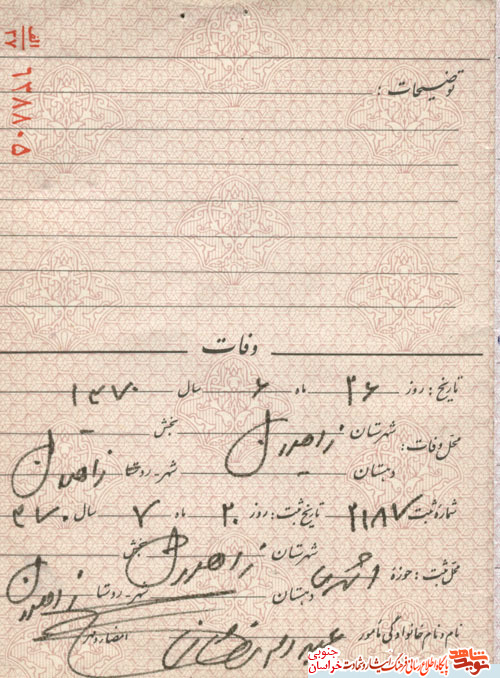 الف
۳۷
۶۳۸۸۰۵
توضیحات :
وفات
تاریخ : روز ۲۶ ماه ۶ سال ۱۳۷۰
محل وفات : شهرستان زاهدان بخش
دهستان شهر - روستا زاهدان
شماره ثبت ۲۱۸۷ تاریخ ثبت : روز ۲۰ ماه ۷ سال ۳۷۰
محل ثبت : حوزه شهرستان زاهدان بخش
دهستان شهر - روستا زاهدان
نام و نام خانوادگی مأمور امضاء و مهر
نوید شاهد
پایگاه اطلاع رسانی فرهنگ ایثار و شهادت خراسان جنوبی